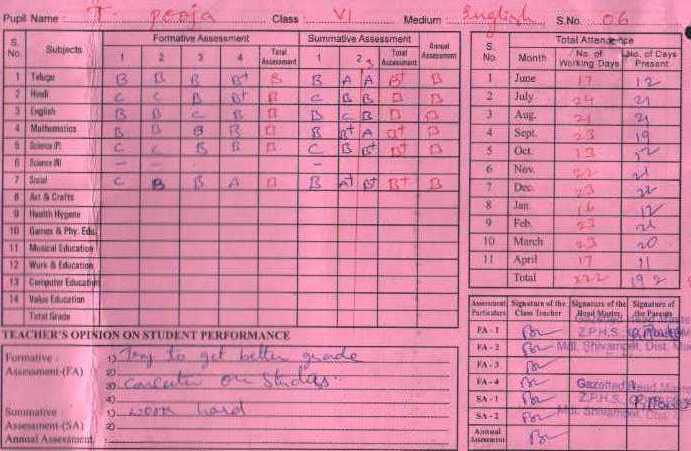 Pupil Name T. pooja Class VI Medium English S.No. 06
S. No. Subjects Formative Assessment Summative Assessment Annual Assessment
1 2 3 4 Total Assessment 1 2 3 Total Assessment
1 Telugu B B B B+ B B A A B+ B
2 Hindi C C B B+ B C B B B B
3 English B B C B B D C B B B
4 Mathematics B B B B B B B+ A B+ B
5 Science (P) C C B B B C B B+ B+ B
6 Science (N) - - -
7 Social C B B A B B A+ B+ B+ B
8 Art & Crafts
9 Health Hygene
10 Games & Phy. Edu.
11 Musical Education
12 Work & Education
13 Computer Education
14 Value Education
Total Grade
S. No. Month Total Attendence
No. of Working Days No. of Days Present
1 June 17 12
2 July 24 21
3 Aug. 21 21
4 Sept. 23 19
5 Oct. 13 12
6 Nov. 22 21
7 Dec. 23 22
8 Jan. 16 12
9 Feb. 23 21
10 March 23 20
11 April 17 11
Total 222 192
TEACHER'S OPINION ON STUDENT PERFORMANCE
Formative Assessment-(FA) 1) Try to get better grade
2)
3) on Studies.
4)
Summative Assessment-(SA) 1) work hard
2)
Annual Assessment :
Assessment Particulars Signature of the Class Teacher Signature of the Head Master Signature of the Parents
FA - 1
FA - 2
FA - 3
FA - 4
SA - 1
SA - 2
Annual Assessment
Gazetted Head Master
Z.P.H.S.
Mdl. Shivampet, Dist.
Gazetted Head Master
Z.P.H.S.
Mdl. Shivampet, Dist.